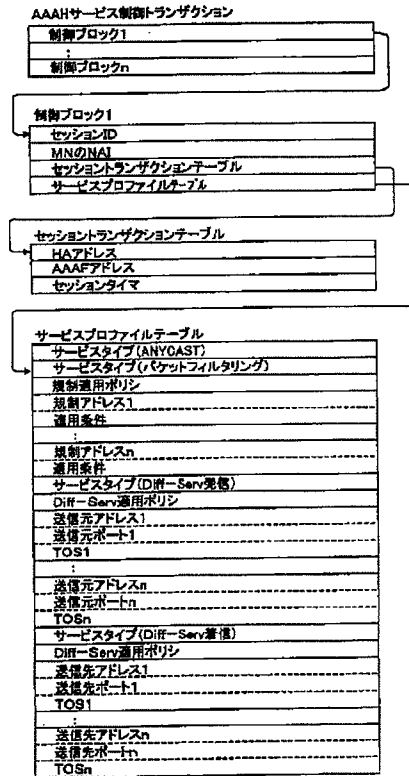 AAAHサービス制御トランザクション
制御ブロック1
:
制御ブロックn
制御ブロック1
セッションID
MNのNAI
セッショントランザクションテーブル
サービスプロファイルテーブル
セッショントランザクションテーブル
HAアドレス
AAAFアドレス
セッションタイマ
サービスプロファイルテーブル
サービスタイプ(ANYCAST)
サービスタイプ(パケットフィルタリング)
規制適用ポリシ
規制アドレス1
適用条件
:
規制アドレスn
適用条件
サービスタイプ(Diff-Serv発信)
Diff-Serv適用ポリシ
送信元アドレス1
送信元ポート1
TOS1
:
送信元アドレスn
送信元ポートn
TOSn
サービスタイプ(Diff-Serv着信)
Diff-Serv適用ポリシ
送信先アドレス1
送信先ポート1
TOS1
:
送信先アドレスn
送信先ポートn
TOSn